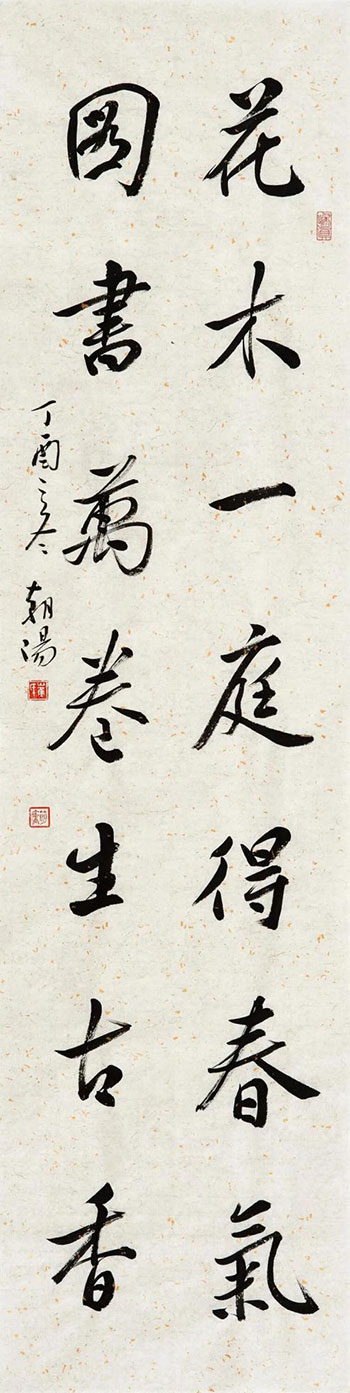 花木一庭得春氣
圖書萬卷生古香
丁酉之冬 朝湯